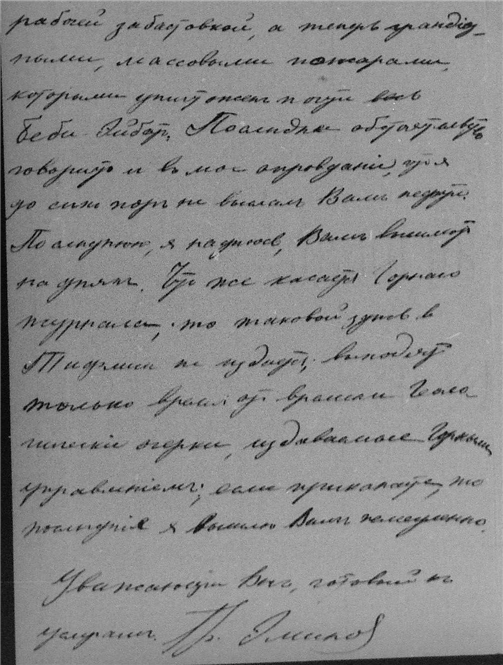 рабочей забастовкой, а теперь грандіоз-
ными, массовыми пожарами,
которыми уничтожен почти весь
Биби-Эйбатъ. Последнее обстоятельство
говоритъ и въ мое оправданіе, что я
до сихъ поръ не выслалъ Вамъ
Последнюю, я надеюсь, Вамъ вышлютъ
на дняхъ. Что же касается Горнаго
журнала, то таковой здесь в
Тифлисе не издается; выходятъ
только время отъ времени Геоло-
гическіе очерки, издаваемые Горнымъ
управленіемъ; если прикажете, то
последніе я вышлю Вамъ немедленно.
Уважающій Васъ, готовый къ
услугамъ